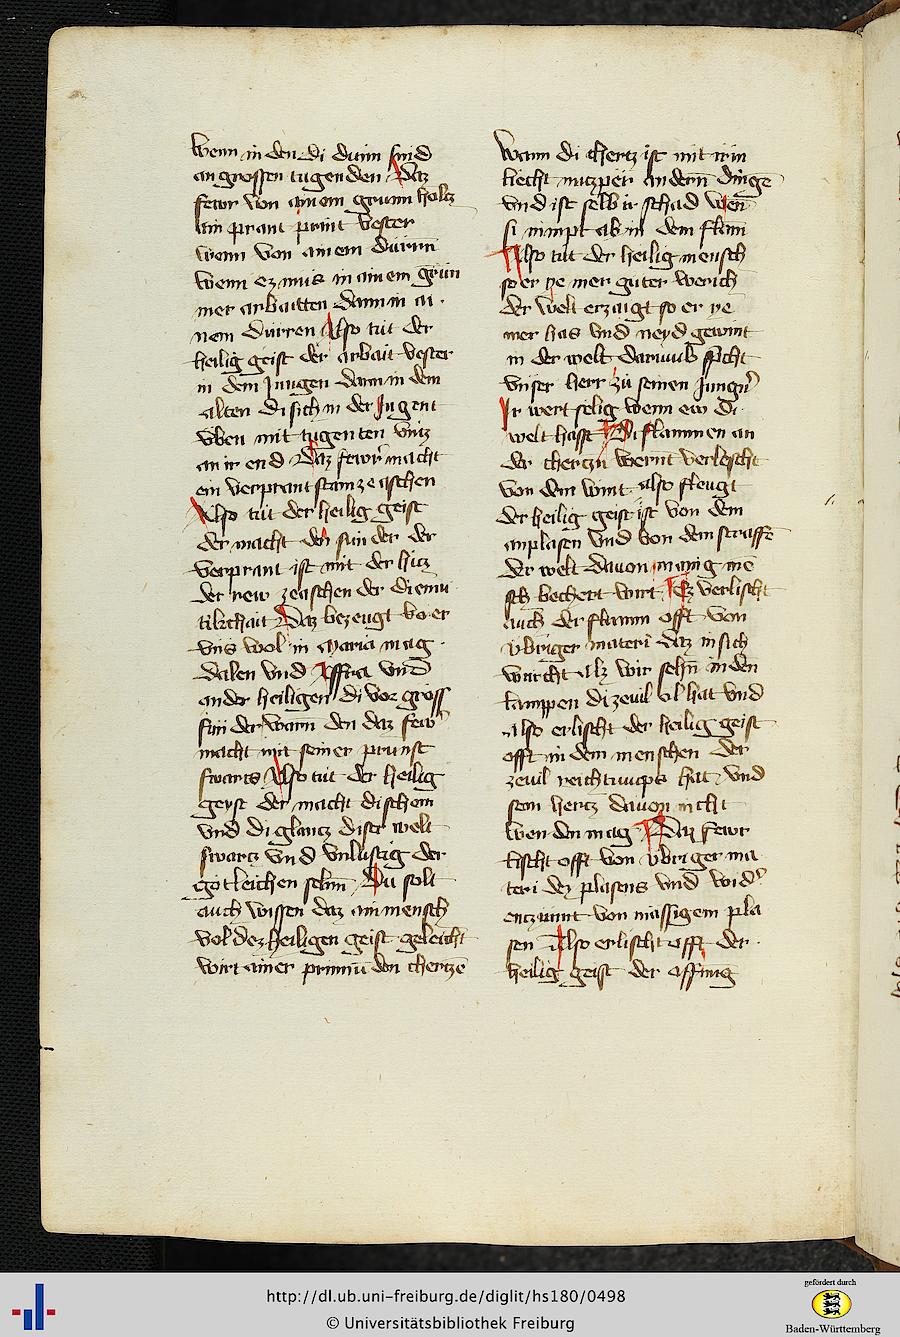 wenn in den di dürn sind
an grossen tugenden Daz
fewr von ainem grünn holtz
ain prant print vester
wenn von ainem dürnn
wenn ez mus in ainem grün
mer arbaitten dann in ai
nem dürren Also tüt der
heilig geist der arbait vester
in dem Jungen dann in dem
alten di sich in der Jugent
vben mit tugenten vncz
an ir end Daz fewr macht
ein verprant stain ze aschen
Also tüt der heilig geist
der macht den sunder der
verprant ist mit der hicz
der rew ze aschen der diemü
tikchait Daz bezeugt
vns wol in Maria mag
dalen vnd Affra vnd
ander heiligen di vor gross
sünder warn den daz fewr
macht mit seiner prunst
swarcs Also tüt der heilig
geyst der macht di schein
vnd di glancz diser welt
swarcz vnd vnlustig der
götleichen selnn Du solt
auch wissen daz ain mensch
vol dez heiligen geist geleicht
wirt ainer prinnünden chertzen
Wann di chertz ist mit irm
liecht nutzper andern dinge
vnd ist selb ir schad wen
si nimpt ab in dem flam
Also tüt der heilig mensch
so er ye mer guter werich
der welt erzaigt so er ye
mer has vnd neyd gewint
in der welt darumb spricht
vnser herr zü seinen Jungern
Ir wert selig wenn ew di
welt hasst Di flammen an
der chertzn wernt verlescht
von dem wint also fleugt
der heilig geist ist von dem
anplasen vnd von dem straffen
der welt dauon manig me
sch bechert wirt Ez verlischt
auch der flamm offt von
vbriger materi daz in sich
würcht alz wir sehn in den
lamppen di ze uil öl hat vnd
also erlischt der heilig geist
offt in dem menschen der
ze uil reichtumps hat vnd
sein hertz dauon nicht
wenden mag Daz fewr
lischt offt von vbriger ma
teri dez plasens vnd wider
enczünnt von mässigem pla
sen Also erlischt offt der
heilig geist der offnung
http://dl.ub.uni-freiburg.de/diglit/hs180/0498
© Universitätsbibliothek Freiburg
gefördert durch
Baden-Württemberg